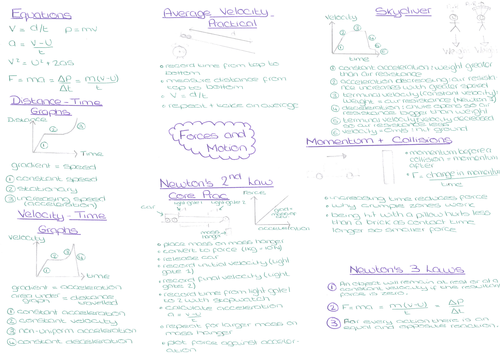 Equations
V = d/t   p = mv
a = v-u/t
V² = U² + 2as
F = ma = Δp/Δt = m(v-u)/t
Distance-Time
Graphs
Distance
Time
gradient = speed
① constant speed
② stationary
③ increasing speed
(acceleration)
Velocity-Time
Graphs
velocity
time
gradient = acceleration
area under graph = distance travelled
① constant acceleration
② constant velocity
③ non-uniform acceleration
④ constant deceleration
Average Velocity
Practical
• record time from top to
bottom
• measure distance from
top to bottom
• V = d/t
• repeat + take an average
Forces and
Motion
Newton's 2nd Law
Core Prac
Force
acceleration
• place mass on mass hanger
• convert to force
• release car
• record initial velocity (light
gate 1)
• record final velocity (light
gate 2)
• record time from light gate
1 to 2 with stopwatch
• calculate acceleration
a = v-u/t
• repeat for larger mass on
mass hanger
• plot force against acceler-
ation
Skydiver
velocity
time
① constant acceleration (weight greater
than air resistance)
② acceleration decreasing air resist-
increases with greater speed
③ terminal velocity (constant velocity)
weight = air resistance (Newton 1)
④ deceleration chute opens so air
resistance bigger than weight
⑤ terminal velocity, velocity decreased
air resistance less
⑥ velocity = 0 m/s hit ground
Momentum + Collisions
• momentum before
collision = momentum
after
• F = change in momentum/time
• increasing time reduces force
• why crumple zones work
• being hit with a pillow hurts less
than a brick as contact time
longer so smaller force
Newton's 3 Laws
① An object will remain at rest or a
constant velocity if the resultant
force is zero.
② F = ma = m(v-u)/t = Δp/Δt
③ For every action there is an
equal and opposite reaction.